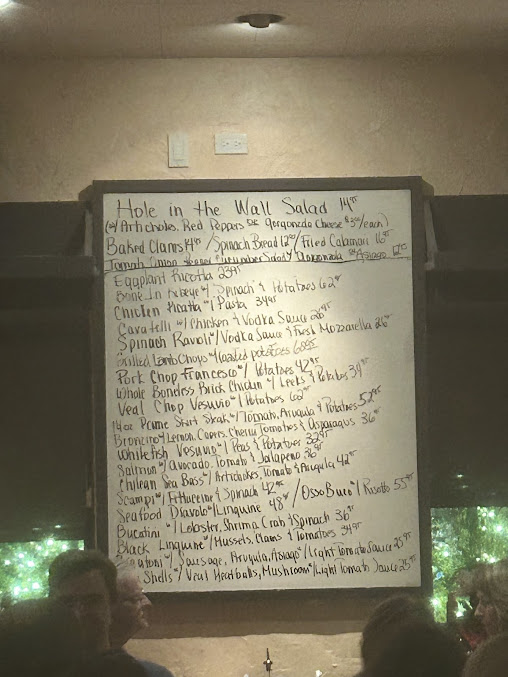 Hole in the Wall Salad 14.95
(w/ Artichokes, Red Peppers or gorgonzola Cheese $3.00/each)
Baked Clams 14.95 / Spinach Bread 12.00 / Fried Calamari 16.95
Tomato Onion Pepper Cucumber Salad w/ Gorgonzola or Asiago
Eggplant Ricotta 23.95
Bone In Ribeye w/ Spinach & Potatoes 62.95
Chicken Picatta w/ Pasta 34.95
Cavatelli w/ Chicken & Vodka Sauce 26.95
Spinach Ravoli w/ Vodka Sauce & Fresh Mozzarella 26.95
Grilled Lamb Chops w/ Roasted potatoes
Pork Chop Francesco w/ Potatoes 42.95
Whole Boneless Brick Chicken w/ Leeks & Potatoes 39.95
Veal Chop Vesuvio w/ Potatoes 62.95
14oz Prime Skirt Steak w/ Tomato, Arugula & Potatoes 52.95
Bronzino w/ Lemon, Capers, Cherry Tomatoes & Asparagus 36.95
Whitefish Vesuvio w/ Peas & Potatoes 32.95
Salmon w/ Avocado, Tomato & Jalapeno 36.95
Chilean Sea Bass w/ Artichokes, Tomato & Arugula 42.95
Scampi w/ Fettuccine & Spinach 42.95
Seafood Diavolo w/ Linguine 48.95 / Osso Buco w/ Risotto 55.95
Bucatini w/ Lobster, Shrimp, Crab & Spinach 36.95
Black Linguine w/ Mussels, Clams & Tomatoes 34.95
Rigatoni w/ Sausage, Arugula, Asiago w/ Light Tomato Sauce 25.95
Shells w/ Veal Meatballs, Mushroom w/ Light Tomato Sauce 25.95